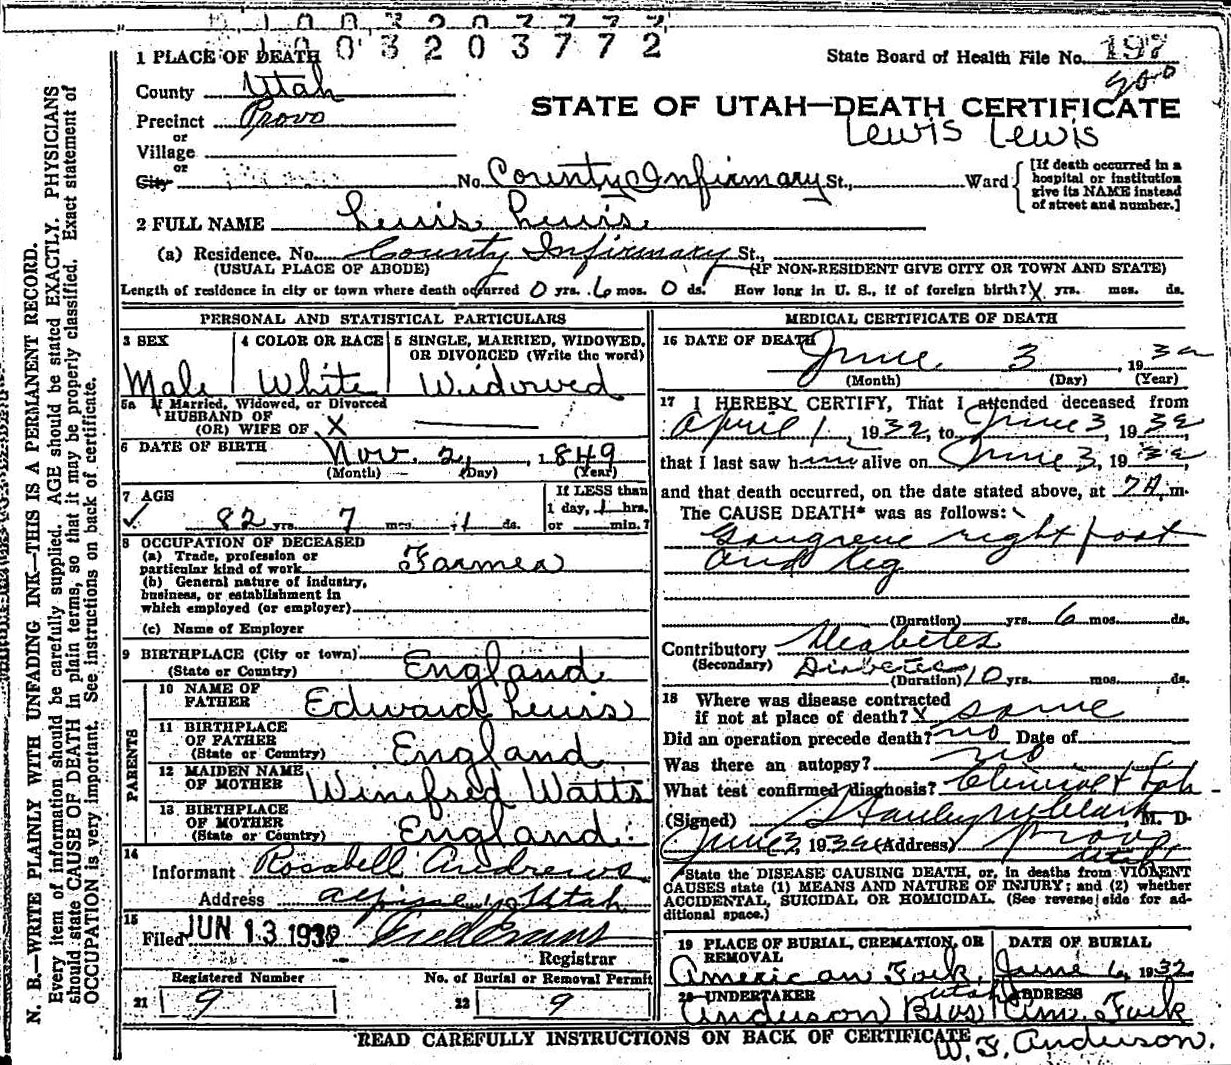 1 0 0 3 2 0 3 7 7 2
1 PLACE OF DEATH
State Board of Health File No. 197
County Utah
STATE OF UTAH—DEATH CERTIFICATE
Precinct Provo
Lewis Lewis
or
Village
or
City
No. County Infirmary St., Ward
[If death occurred in a hospital or institution give its NAME instead of street and number.]
2 FULL NAME Lewis Lewis
(a) Residence. No. County Infirmary St.,
(USUAL PLACE OF ABODE) (IF NON-RESIDENT GIVE CITY OR TOWN AND STATE)
Length of residence in city or town where death occurred 0 yrs. 6 mos. 0 ds. How long in U. S., if of foreign birth? X yrs. mos. ds.
PERSONAL AND STATISTICAL PARTICULARS
3 SEX
Male
4 COLOR OR RACE
White
5 SINGLE, MARRIED, WIDOWED, OR DIVORCED (Write the word)
Widowed
5a If Married, Widowed, or Divorced
HUSBAND OF
(OR) WIFE OF X
6 DATE OF BIRTH Nov. 2, 1849
(Month) (Day) (Year)
7 AGE
82 yrs. 7 mos. 1 ds.
If LESS than
1 day, 1 hrs.
or min.?
8 OCCUPATION OF DECEASED
(a) Trade, profession or
particular kind of work Farmer
(b) General nature of industry,
business, or establishment in
which employed (or employer)
(c) Name of Employer
9 BIRTHPLACE (City or town)
(State or Country) England
PARENTS
10 NAME OF
FATHER Edward Lewis
11 BIRTHPLACE
OF FATHER
(State or Country) England
12 MAIDEN NAME
OF MOTHER Winifred Watts
13 BIRTHPLACE
OF MOTHER
(State or Country) England
14
Informant Rosabell Andrews
Address Alpine Utah
15
Filed JUN 13 1932 Evans
Registrar
Registered Number
21 9
No. of Burial or Removal Permit
22 9
MEDICAL CERTIFICATE OF DEATH
16 DATE OF DEATH
June 3, 1932
(Month) (Day) (Year)
17 I HEREBY CERTIFY, That I attended deceased from
April 1, 1932, to June 3, 1932
that I last saw him alive on June 3, 1932,
and that death occurred, on the date stated above, at 7 A. m.
The CAUSE DEATH* was as follows:
Gangrene right foot
and leg
(Duration) yrs. 6 mos. ds.
Contributory Diabetes
(Secondary) Diabetes
(Duration) 10 yrs. mos. ds.
18 Where was disease contracted
if not at place of death? X same
Did an operation precede death? no Date of
Was there an autopsy? no
What test confirmed diagnosis? Clinical & Lab
(Signed) Stanley M Clark M. D.
June 3, 1932 (Address) Provo
Utah
*State the DISEASE CAUSING DEATH, or, in deaths from VIOLENT
CAUSES state (1) MEANS AND NATURE OF INJURY; and (2) whether
ACCIDENTAL, SUICIDAL OR HOMICIDAL. (See reverse side for ad-
ditional space.)
19 PLACE OF BURIAL, CREMATION, OR
REMOVAL
American Fork, Utah
DATE OF BURIAL
June 6, 1932
20 UNDERTAKER
Anderson Bros
ADDRESS
Am. Fork
READ CAREFULLY INSTRUCTIONS ON BACK OF CERTIFICATE
W. F. Anderson.
N. B.—WRITE PLAINLY WITH UNFADING INK—THIS IS A PERMANENT RECORD.
Every item of information should be carefully supplied. AGE should be stated EXACTLY. PHYSICIANS
should state CAUSE OF DEATH in plain terms, so that it may be properly classified. Exact statement of
OCCUPATION is very important. See instructions on back of certificate.